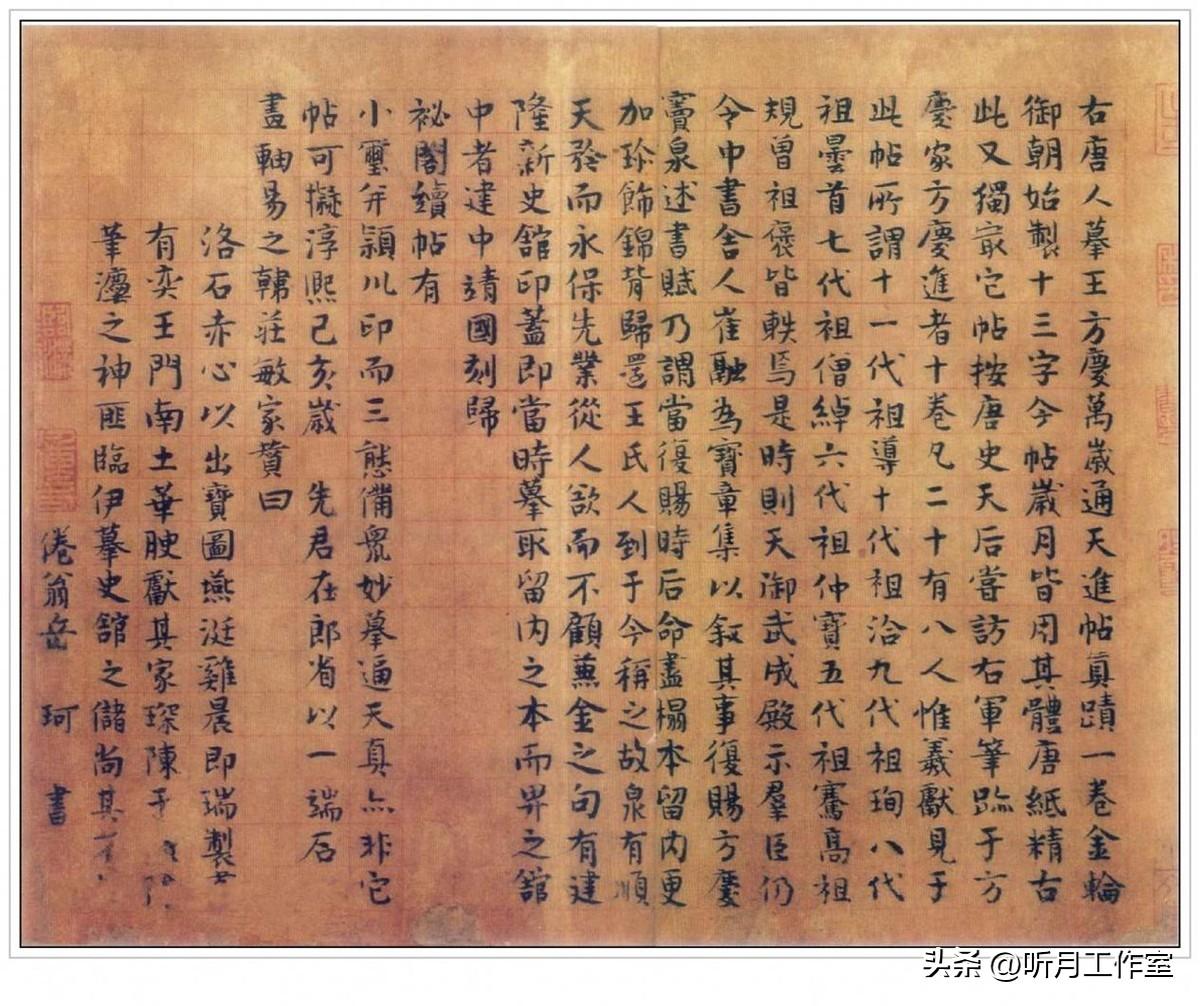 右唐人摹王方慶萬歲通天進帖真蹟一卷金輪
御朝始製十三字今帖歲月皆用其體唐紙精古
此又獨冣它帖按唐史天后嘗訪右軍筆跡于方
慶家方慶進者十卷凡二十有八人惟羲獻見于
此帖所謂十一代祖導十代祖洽九代祖珣八代
祖曇首七代祖僧綽六代祖仲寶五代祖騫高祖
規曾祖褒皆軼焉是時則天御武成殿示羣臣仍
令中書舍人崔融為寶章集以叙其事復賜方慶
竇泉述書賦乃謂當復賜時后命盡榻本留内更
加珍飾錦背歸還王氏人到于今稱之故泉有順
天矜而永保先業從人欲而不顧兼金之句有建
隆新史舘印蓋即當時摹取留内之本而畀之舘
中者建中靖國刻歸
祕閣續帖有
小璽并潁川印而三態備衆妙摹逼天真亦非它
帖可擬淳熙己亥歲 先君在郎省以一端石
畫軸易之韓莊敏家贊曰
洛石赤心以出寶圖燕涎雞晨即瑞製
有奕王門南土華腴獻其家琛陳于
筆瀍之神匪臨伊摹史舘之儲尚其
倦翁岳 珂 書
头条 @听月工作室